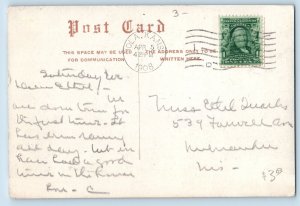 3-
Post Card
THIS SPACE MAY BE USED
FOR COMMUNICATION.
THE ADDRESS ONLY TO BE
WRITTEN HERE.
APR 5
1908
Saturday Eve.
Dear Ethel:- We
are down town for
the first time. It
has been rainy
all day. but we
have had a good
time in the house
Eva - C
Miss Ethel Quarles
539 Farwell Ave
Milwaukee
Wis-
$3.00